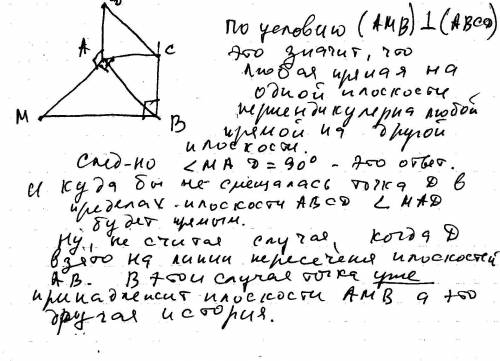 D
A
C
M
B
По условию (AMB) ⊥ (ABCD)
Это значит, что
любая прямая на
одной плоскости
перпендикулярна любой
прямой на другой
плоскости.
След-но ∠MAD = 90° - это ответ.
И куда бы не смещалась точка D в
пределах плоскости ABCD ∠MAD
будет прямым.
Ну, не считая случая, когда D
взято на линии пересечения плоскостей
AB. В этом случае точка уже
принадлежит плоскости AMB а это
другая история.